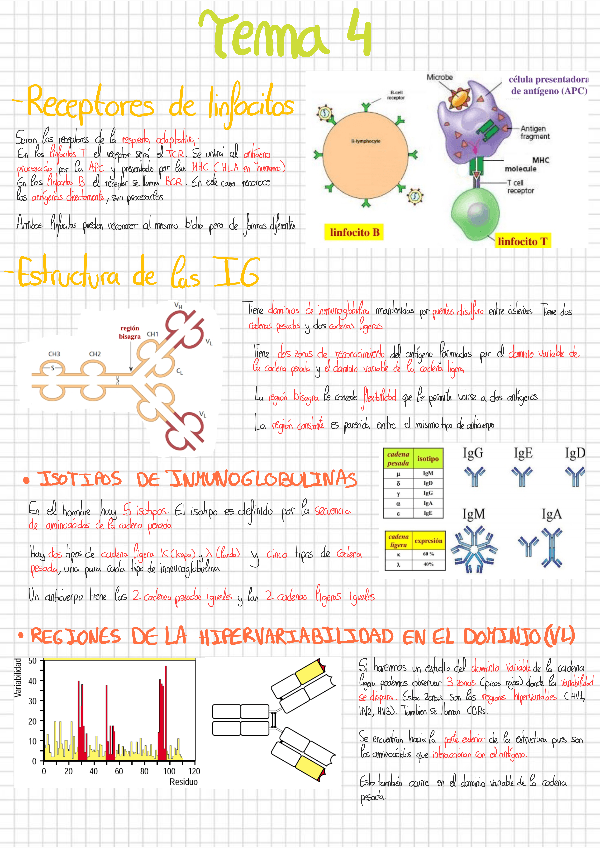 Tema 4
- Receptores de linfocitos
Serán los receptores de la respuesta adaptativa:
En los linfocitos T el receptor será el TCR. Se unirá al antígeno
procesado por la APC y presentado por las MHC (HLA en humano)
En los linfocitos B el receptor se llama BCR. En este caso reconoce
los antígenos directamente, sin procesarlos
Ambos linfocitos pueden reconocer al mismo bicho pero de formas diferente
Microbe
célula presentadora
de antígeno (APC)
B-cell
receptor
B-lymphocyte
Antigen
fragment
MHC
molecule
T cell
receptor
linfocito B
linfocito T
- Estructura de las IG
región
bisagra
CH3
CH2
CH1
VH
VL
CL
S
S
VL
Tiene dominios de inmunoglobulina mantenidos por puentes disulfuro entre cisteínas. Tiene dos
cadenas pesadas y dos cadenas ligeras
Tiene dos zonas de reconocimiento del antígeno formadas por el dominio variable de
la cadena pesada y el dominio variable de la cadena ligera
La región bisagra le concede flexibilidad que le permite unirse a dos antígenos
La región constante es parecida entre el mismo tipo de anticuerpo
• ISOTIPOS DE INMUNOGLOBULINAS
En el hombre hay 5 isotipos. El isotipo es definido por la secuencia
de aminoácidos de la cadena pesada
Hay dos tipos de cadena ligera K (kapa) y λ (landa) y cinco tipos de cadena
pesada, una para cada tipo de inmunoglobulina
Un anticuerpo tiene las 2 cadenas pesadas iguales y las 2 cadenas ligeras iguales
cadena pesada isotipo
μ IgM
δ IgD
γ IgG
α IgA
ε IgE
cadena ligera expresión
κ 60 %
λ 40%
IgG IgE IgD
IgM IgA
• REGIONES DE LA HIPERVARIABILIDAD EN EL DOMINIO (VL)
Variabilidad
50
40
30
20
10
0
0 20 40 60 80 100 120
Residuo
Si hacemos un estudio del dominio variable de la cadena
ligera podemos observar 3 zonas (picos rojos) donde la variabilidad
se dispara. Estas zonas son las regiones hipervariables (HV1,
HV2, HV3). También se llaman CDRs.
Se encuentran hacia la parte exterior de la estructura pues son
los aminoácidos que interaccionan con el antígeno.
Esto también ocurre en el dominio variable de la cadena
pesada.